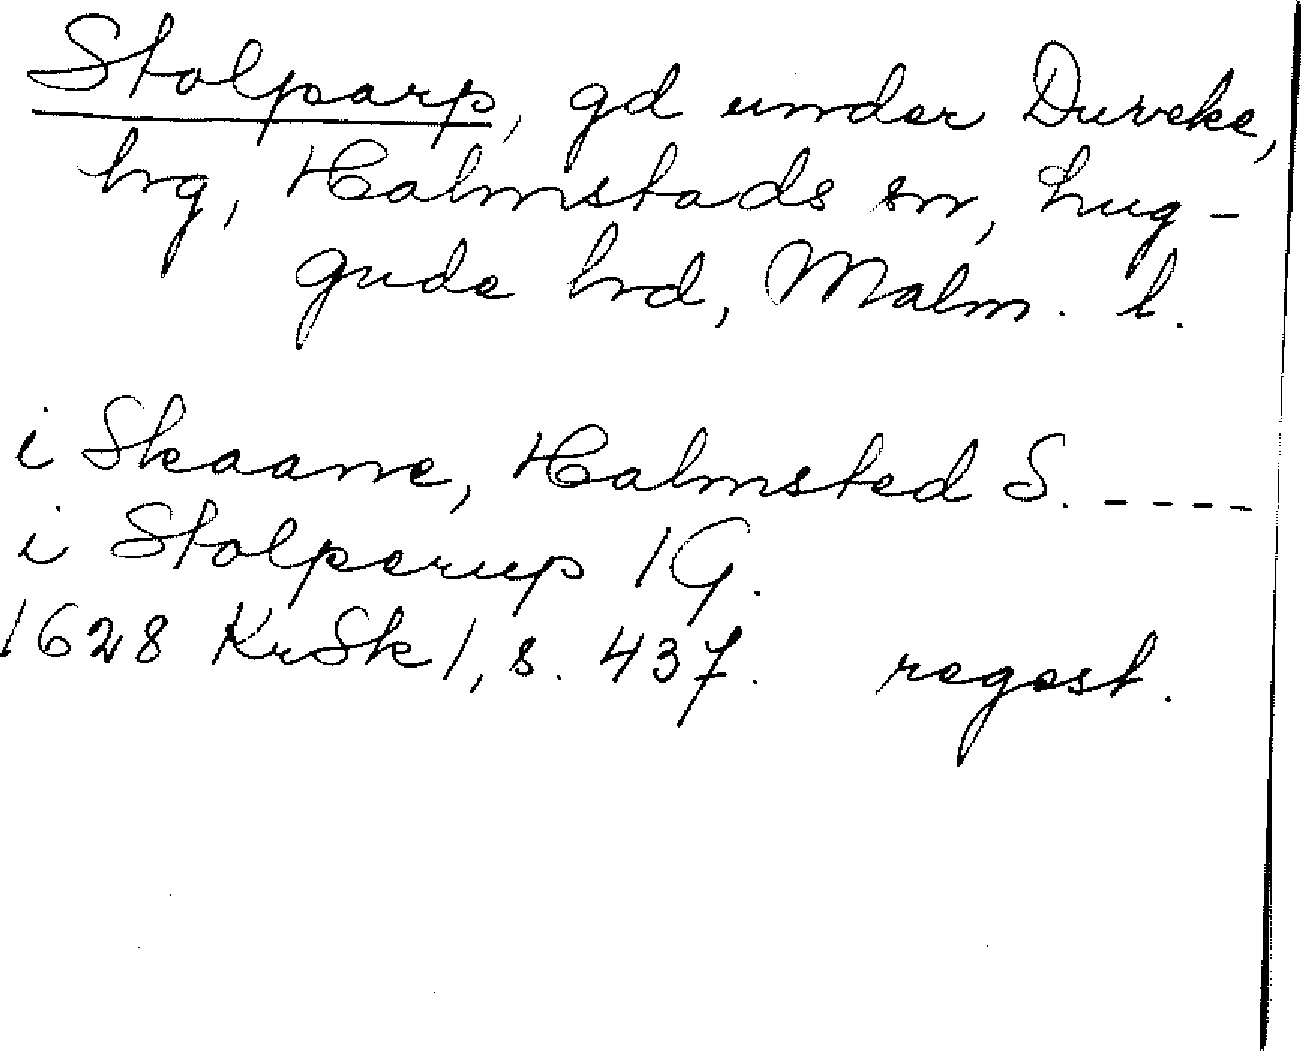 Stolparp, gd under Duveke,
hrg, Halmstads sn, Lug-
gude hrd, Malm. l.
i Skaane, Halmsted S. ----
i Stolperup 1 G.
1628 KrSk 1, s. 437. regest.